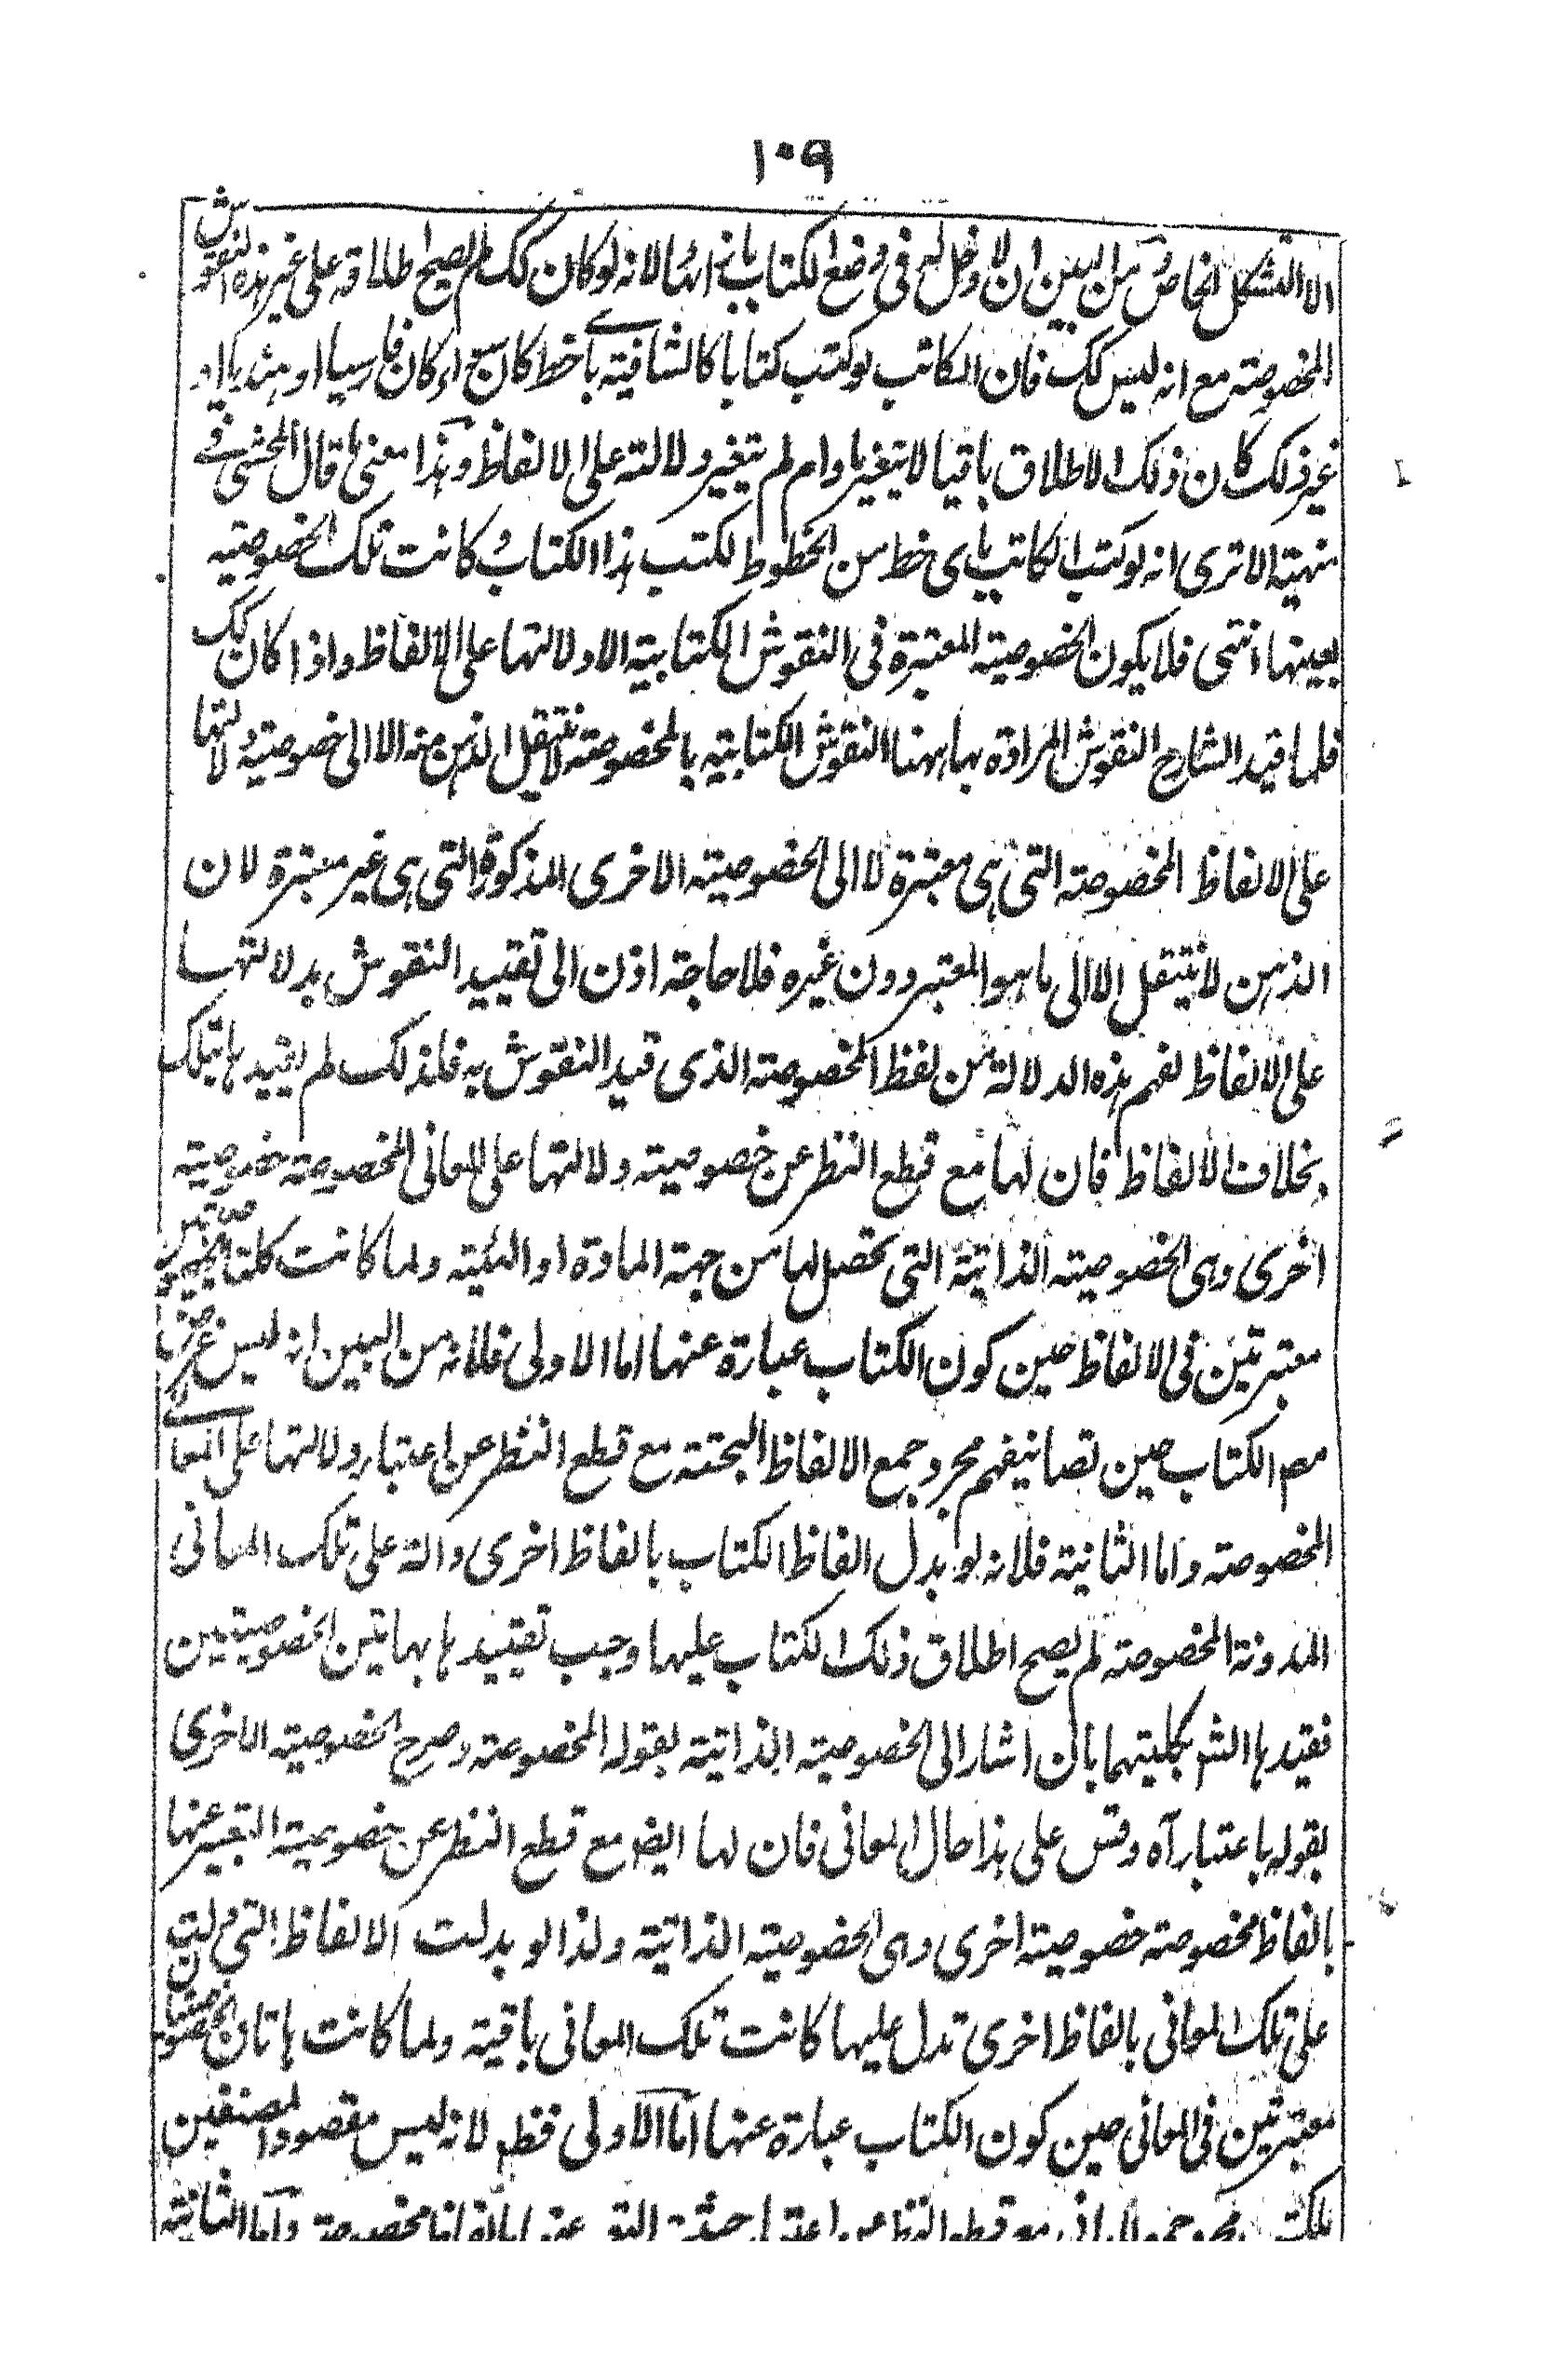 ١٠٩
الا التشكل الخاص ومن البين ان لا دخل له في وضع الكتاب بازائها لانه لو كان كك لم يصح اطلاقه على غير هذه النقوش
المخصوصة مع انه ليس كك فان الكاتب لو كتب كتابا كالشافية باي خط كان سواء كان فارسيا او هنديا او
غير ذلك كان ذلك الاطلاق باقيا لا يتغير ما دام لم يتغير دلالته على الالفاظ وهذا معنى ما قال المحشي في
منهيته الا ترى انه لو كتب الكاتب باى خط من الخطوط لكتب هذا الكتاب وكانت تلك الخصوصية
بعينها انتهى فلا يكون الخصوصية المعتبرة في النقوش الكتابية الا دلالتها على الالفاظ واذا كان كك
فلما قيد الشارح النقوش المرادة بها ههنا النقوش الكتابية بالمخصوصة لا ينتقل الذهن منه الا الى خصوصية دلالتها
على الالفاظ المخصوصة التي هى معتبرة لا الى الخصوصية الاخرى المذكورة التي هى غير معتبرة لان
الذهن لا ينتقل الا الى ما هو المعتبر دون غيره فلا حاجة اذن الى تقييد النقوش بدلالتها
على الالفاظ لفهم هذه الدلالة من لفظ المخصوصة الذى قيد النقوش به فلذلك لم يقيدها بتلك
بخلاف الالفاظ فان لها مع قطع النظر عن خصوصية دلالتها على المعاني المخصوصة خصوصية
اخرى وهى الخصوصية الذاتية التي تحصل لها من جهة المادة او الهيئة ولما كانت كلتا الخصوصيتين
معتبرتين في الالفاظ حين كون الكتاب عبارة عنها اما الاولى فلانه من البين انه ليس غرض
مص الكتاب حين تصانيفهم مجرد جمع الالفاظ البحتة مع قطع النظر عن اعتبار دلالتها على المعاني
المخصوصة واما الثانية فلانه لو بدل الفاظ الكتاب بالفاظ اخرى دالة على تلك المعاني
المدونة المخصوصة لم يصح اطلاق ذلك الكتاب عليها وجب تقييدها بهاتين الخصوصيتين
فقيدها الشم بكليتهما بان اشار الى الخصوصية الذاتية بقوله المخصوصة وصرح الخصوصية الاخرى
بقوله باعتبار آه وقس على هذا حال المعاني فان لها ايض مع قطع النظر عن خصوصية التعبير عنها
بالفاظ مخصوصة خصوصية اخرى وهى الخصوصية الذاتية ولذا لو بدلت الالفاظ التي دلت
على تلك المعاني بالفاظ اخرى تدل عليها كانت تلك المعاني باقية ولما كانت هاتان الخصوصيتان
معتبرتين في المعاني حين كون الكتاب عبارة عنها اما الاولى فظ لانه ليس مقصود المصنفين